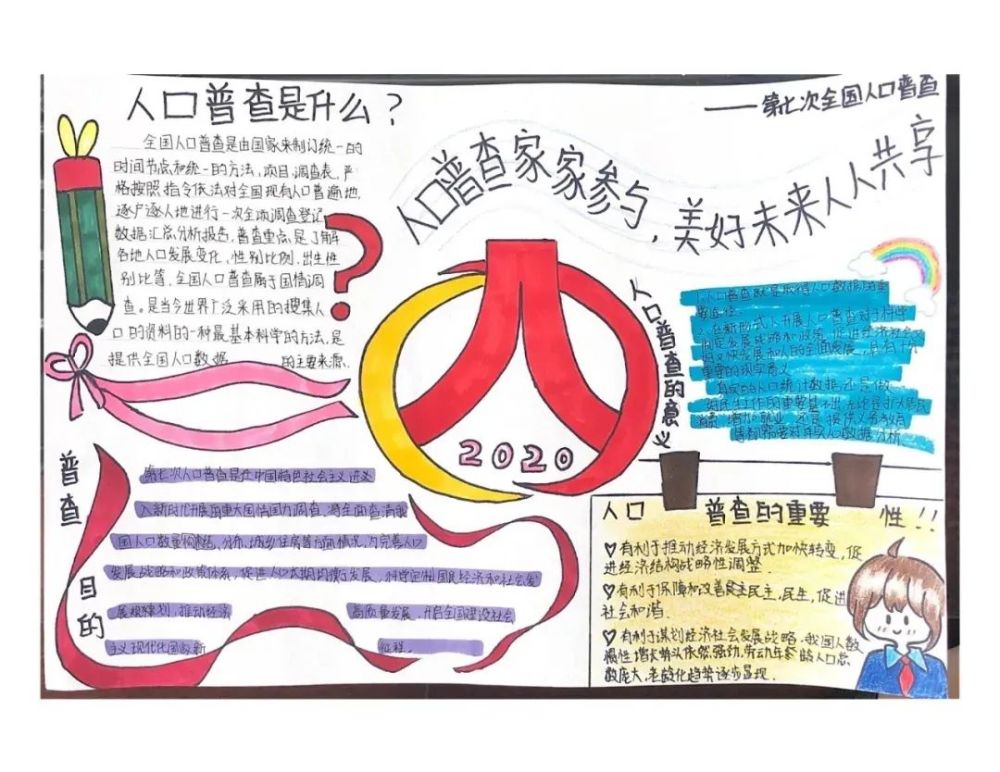 人口普查是什么?
全国人口普查是由国家来制订统一的
时间节点和统一的方法,项目,调查表,严
格按照指令依法对全国现有人口普遍地,
逐户逐人地进行一次全项调查登记
数据汇总分析报告,普查重点是了解
各地人口发展变化,性别比例,出生性
别比等,全国人口普查属于国情调
查。是当今世界广泛采用的搜集人
口的资料的一种最基本科学的方法,是
提供全国人口数据 的主要来源.
——第七次全国人口普查
人口普查家家参与,美好未来人人共享
2020
人口普查的意义
要途径
2.在新形式下开展人口普查对于科学
制定发展战略和政策,促进经济社会又
好又快发展和人的全面发展,具有十分
重要的现实意义
真实的人口统计数据,还是做
普查目的
第七次人口普查是在中国特色社会主义进义
入新时代开展的重大国情国力调查,将全面查清我
国人口数量、结构、分布、城乡住房等方面情况,为完善人口
发展战略和政策体系,促进人口长期均衡发展,科学定制国民经济和社会发
展规律划,推动经济 高质量发展,开启全国建设社会
主义现代化国家新 征程.
人口普查的重要性!!
♡有利于推动经济发展方式加快转变,促
进经济结构战略性调整.
♡有利于保障和改善民主民主,民生,促进
社会和谐.
♡有利于谋划经济社会发展战略,我国人数
惯性增长势头依然强劲,劳动年龄的人口总
数庞大,老龄化趋势逐步显现.